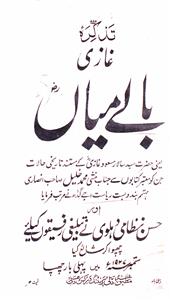 تذکرہ
غازی
بالے میاں
یعنی حضرت سید سالار مسعود غازیؒ کے مستند تاریخی حالات
جن کو معتبر کتابوں سے جناب منشی محمد خلیل صاحب انصاری
نے مرتب فرمایا
اور
حسن نظامی دہلوی نے تبلیغی رفیقوں کیلئے
چھپوا کر شائع کیا
ستمبر ۱۹۲۶ء میں پہلی بار چھپا